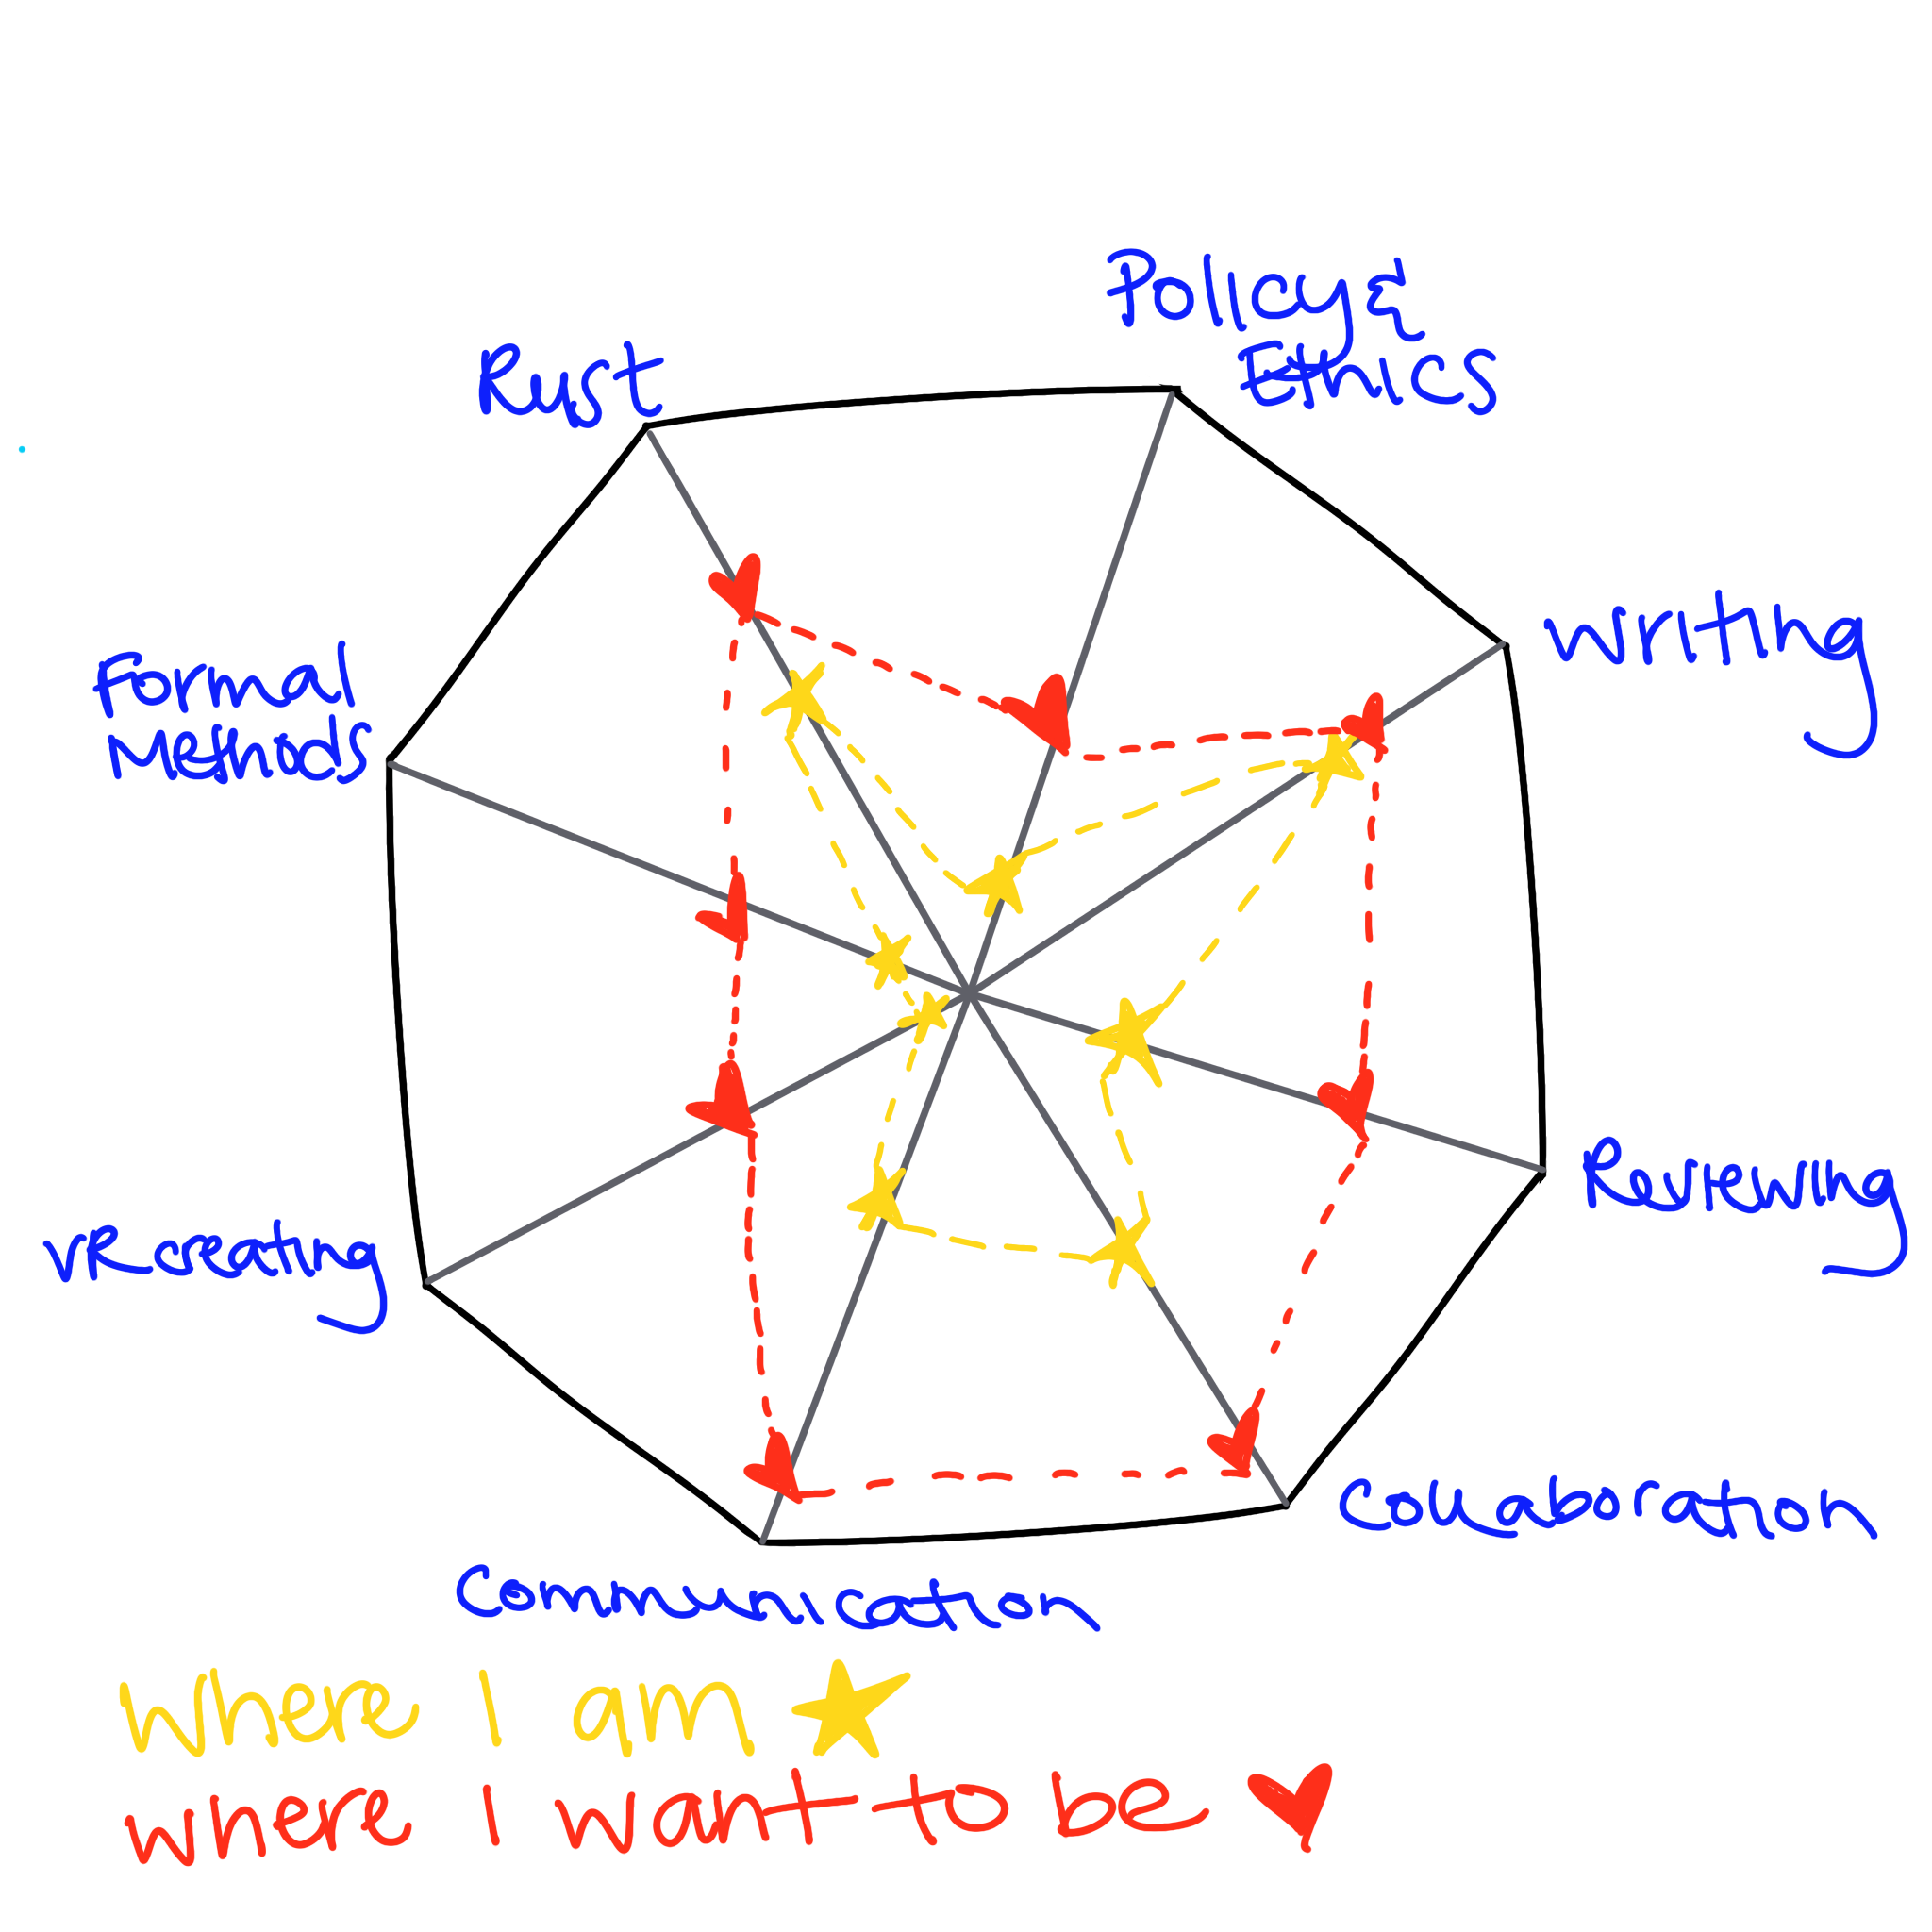 Policy &
Ethics
Rust
Writing
Formal
Methods
Reviewing
Recreating
Collaboration
Communication
Where I am
Where I want to be